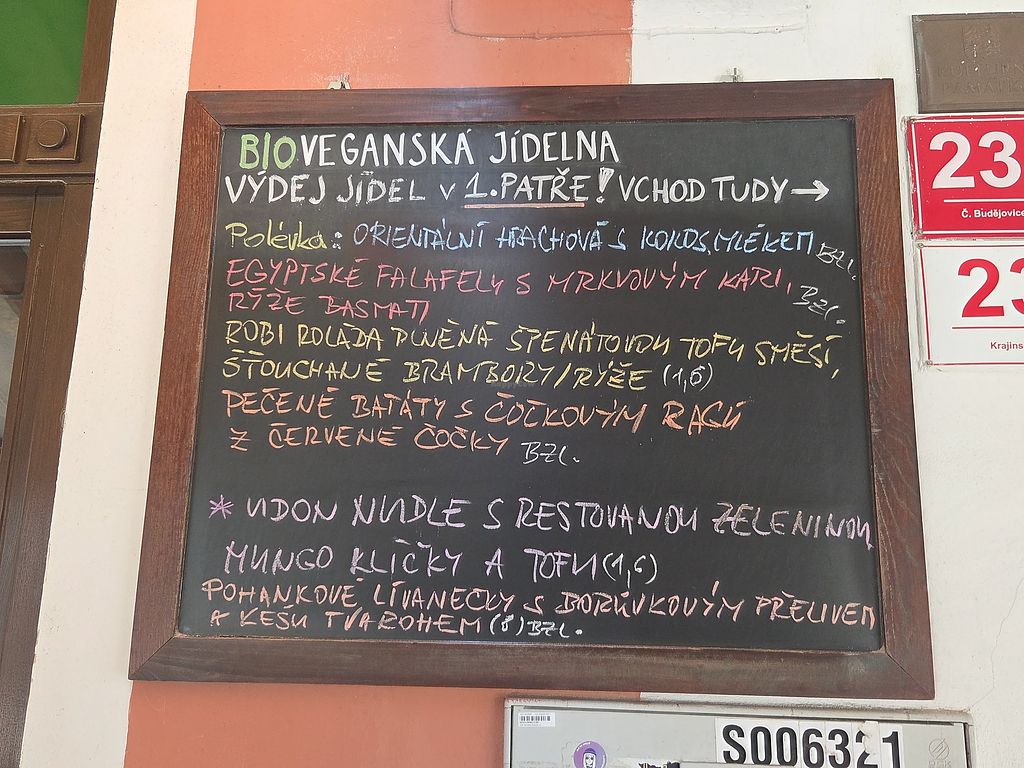 BIOVEGANSKÁ JÍDELNA
VÝDEJ JÍDEL V 1. PATŘE! VCHOD TUDY →
Polévka: ORIENTÁLNÍ HRACHOVÁ S KOKOS. MLÉKEM BZL.
EGYPTSKÉ FALAFELY S MRKVOVÝM KARI,
RÝŽE BASMATI BZL.
ROBI ROLÁDA PLNĚNÁ ŠPENÁTOVOU TOFU SMĚSÍ,
ŠŤOUCHANÉ BRAMBORY/RÝŽE (1,6)
PEČENÉ BATÁTY S ČOČKOVÝM RAGÚ
Z ČERVENÉ ČOČKY BZL.
* UDON NUDLE S RESTOVANOU ZELENINOU,
MUNGO KLÍČKY A TOFU (1,6)
POHANKOVÉ LÍVANEČKY S BORŮVKOVÝM PŘELIVEM
A KEŠU TVAROHEM (8) BZL.
23
Č. Budějovice
23
Krajins
S006321